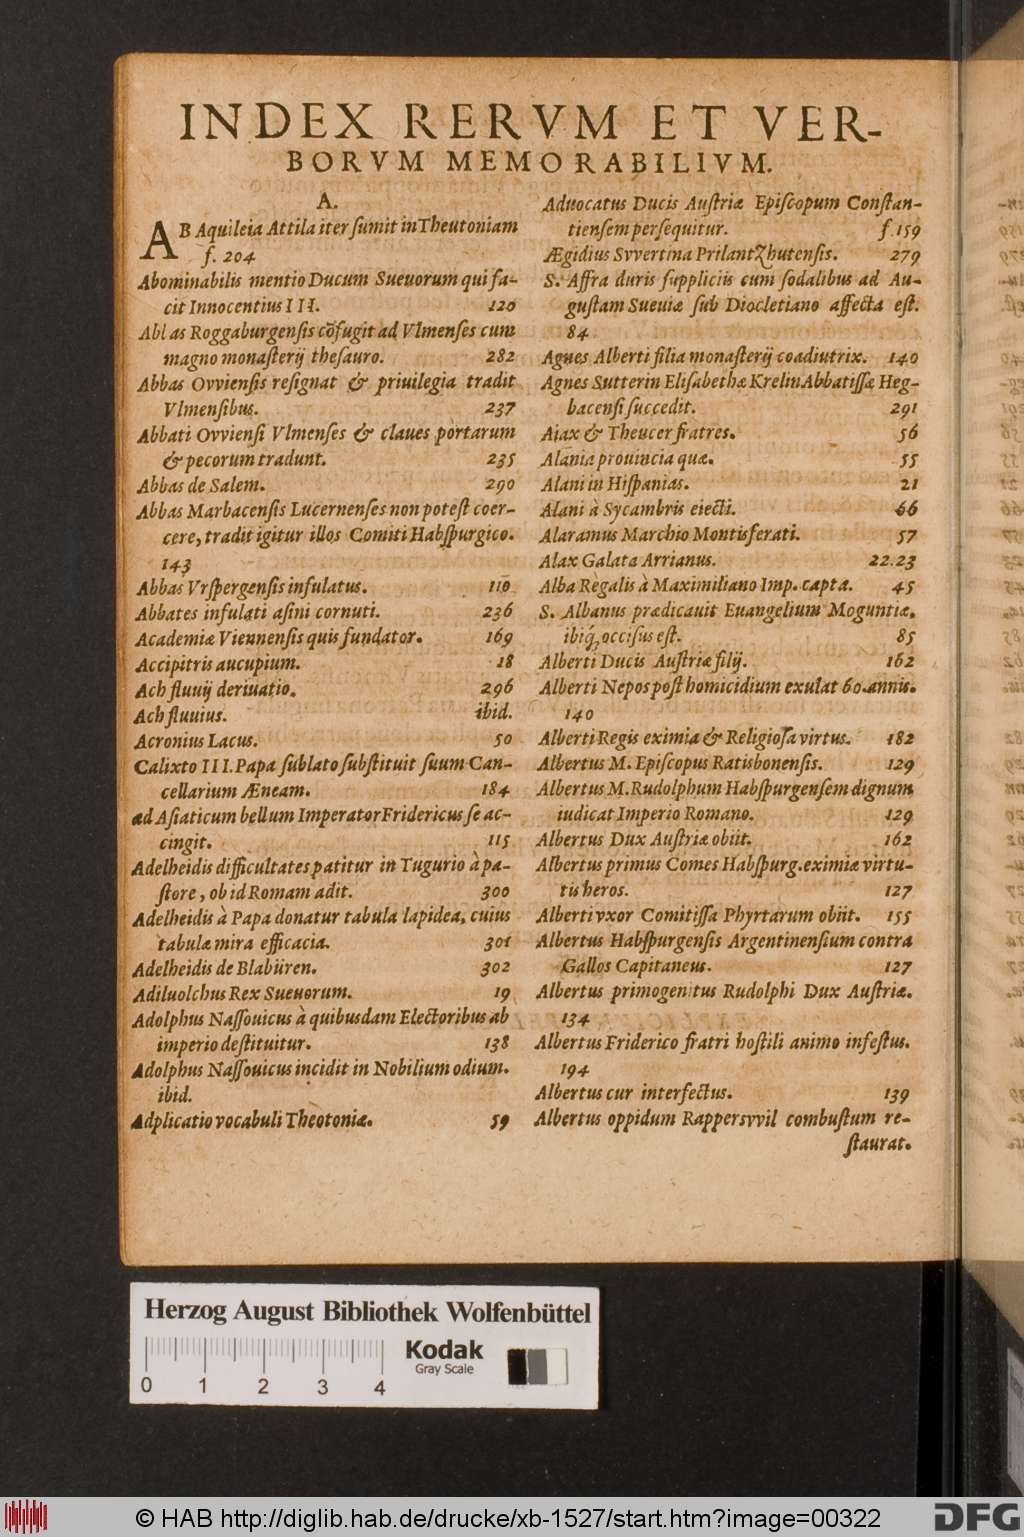 INDEX RERVM ET VER-
BORVM MEMORABILIVM.
A.
AB Aquileia Attila iter ſumit in Theutoniam
f. 204
Abominabilis mentio Ducum Sueuorum qui fa-
cit Innocentius III. 120
Abbas Roggaburgenſis cōfugit ad Vlmenſes cum
magno monaſterij theſauro. 282
Abbas Ovvienſis reſignat & priuilegia tradit
Vlmenſibus. 237
Abbati Ovvienſi Vlmenſes & claues portarum
& pecorum tradunt. 235
Abbas de Salem. 290
Abbas Marbacenſis Lucernenſes non poteſt coer-
cere, tradit igitur illos Comiti Habſpurgico.
143
Abbas Vrſpergenſis infulatus. 110
Abbates infulati aſini cornuti. 236
Academiæ Viennenſis quis fundator. 169
Accipitris aucupium. 18
Ach fluuij deriuatio. 296
Ach fluuius. ibid.
Acronius Lacus. 50
Calixto III. Papa ſublato ſubſtituit ſuum Can-
cellarium Æneam. 184
ad Aſiaticum bellum Imperator Fridericus ſe ac-
cingit. 115
Adelheidis difficultates patitur in Tugurio à pa-
ſtore, ob id Romam adit. 300
Adelheidis à Papa donatur tabula lapidea, cuius
tabulæ mira efficacia. 301
Adelheidis de Blabüren. 302
Adiluolchus Rex Sueuorum. 19
Adolphus Naſſouicus à quibusdam Electoribus ab
imperio deſtituitur. 138
Adolphus Naſſouicus incidit in Nobilium odium.
ibid.
Adplicatio vocabuli Theotoniæ. 59
Aduocatus Ducis Auſtriæ Epiſcopum Conſtan-
tienſem perſequitur. f. 159
Ægidius Svvertina Prilantzhutenſis. 279
S. Affra duris ſuppliciis cum ſodalibus ad Au-
guſtam Sueuiæ ſub Diocletiano affecta eſt.
84
Agnes Alberti filia monaſterij coadiutrix. 140
Agnes Sutterin Eliſabethæ Krelin Abbatiſſæ Heg-
bacenſi ſuccedit. 291
Aiax & Theucer fratres. 56
Alania prouincia quæ. 55
Alani in Hiſpanias. 21
Alani à Sycambris eiecti. 66
Alaramus Marchio Montisferati. 57
Alax Galata Arrianus. 22.23
Alba Regalis à Maximiliano Imp. capta. 45
S. Albanus prædicauit Euangelium Moguntiæ,
ibiq́; occiſus eſt. 85
Alberti Ducis Auſtriæ filij. 162
Alberti Nepos poſt homicidium exulat 60. annis.
140
Alberti Regis eximia & Religioſa virtus. 182
Albertus M. Epiſcopus Ratisbonenſis. 129
Albertus M. Rudolphum Habſpurgenſem dignum
iudicat Imperio Romano. 129
Albertus Dux Auſtriæ obiit. 162
Albertus primus Comes Habſpurg. eximiæ virtu-
tis heros. 127
Alberti vxor Comitiſſa Phyrtarum obiit. 155
Albertus Habſpurgenſis Argentinenſium contra
Gallos Capitaneus. 127
Albertus primogenitus Rudolphi Dux Auſtriæ.
134
Albertus Friderico fratri hoſtili animo infeſtus.
194
Albertus cur interfectus. 139
Albertus oppidum Rappersvvil combuſtum re-
ſtaurat.
Herzog August Bibliothek Wolfenbüttel
Kodak
Gray Scale
0 1 2 3 4
© HAB http://diglib.hab.de/drucke/xb-1527/start.htm?image=00322
DFG